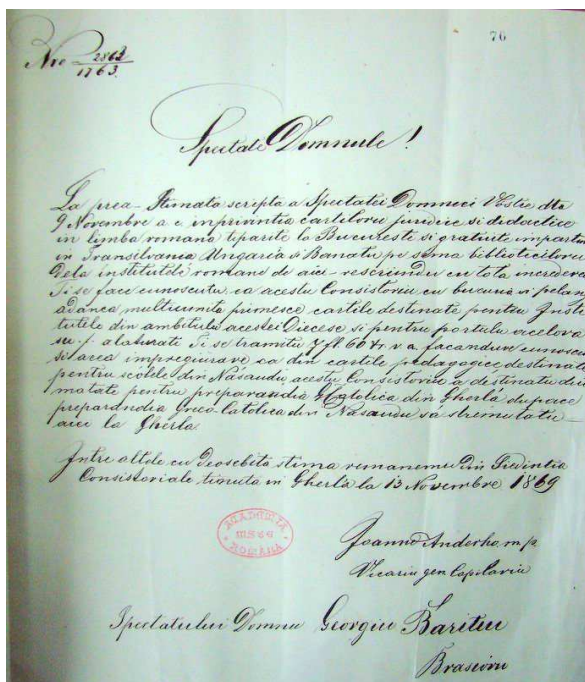 76
Nro 2862/1763.
Spectate Domnule!
La prea-stimata scripta a Spectatei Domniei Vostre dto
9 Novembre a. c. in privintia cartiloru juridice si didactice
in limba romana tiparite la Bucuresti si gratuite impartite
in Transilvania Ungaria si Banatu pe sema biblioteciloru
dela institutele romane de aici - rescriindu cu tota increderea
Ti se face cunoscutu, ca acestu Consistoriu cu bucuria si pelanga
adanca multiumita primesce cartile destinate pentru Insti-
tutele din ambitulu acestei Diecese si pentru portulu acelora
sub ·/. alaturate Ti se tramitu 7 fl. 66 xr v. a. facandu cunoscutu
si acea impregiurare ca din cartile pedagogice destinate
pentru scólele din Násaudu acestu Consistoriu a destinatu diu-
matate pentru preparandia Catolica din Gherla dupace
preparandia Greco-Catolica din Nasaudu sá stremutatu
aici la Gherla.
Intre altele cu deosebita stima remanemu Din Siedintia
Consistoriale tienuta in Gherla la 13 Novembre 1869
ACADEMIA
MSSE
ROMANA
Joanne Anderko m/p
Vicariu gen. Capitulariu
Spectatului Domnu Georgiu Baritiu
Brasiovu